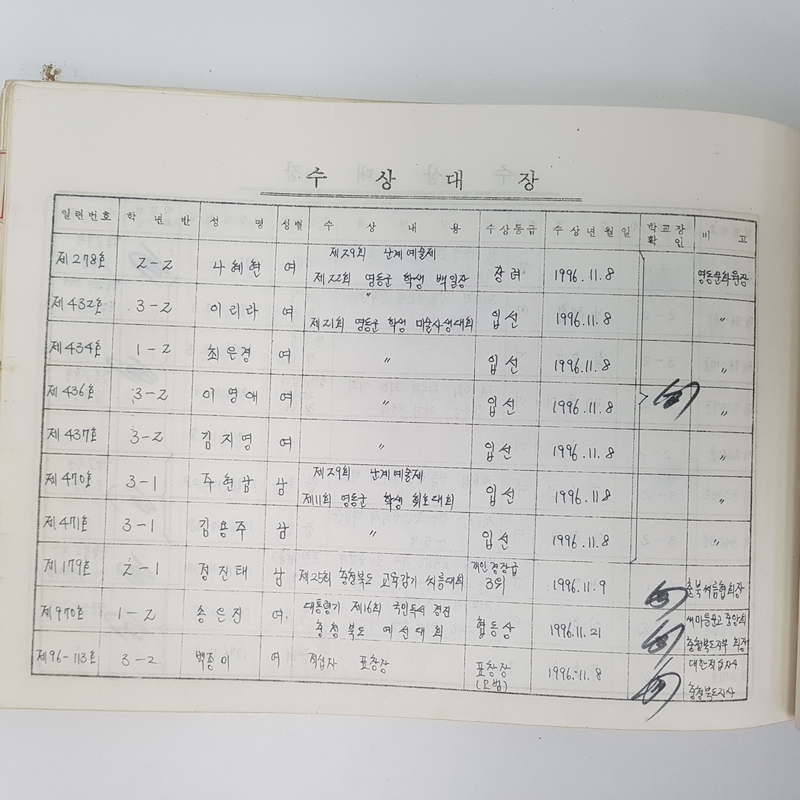 수 상 대 장
일련번호 학 년 반 성 명 성별 수 상 내 용 수상등급 수 상 년 월 일 학교장 확 인 비 고
제278호 2-2 나혜현 여 제29회 난계예술제 제22회 영동군 학생 백일장 장려 1996.11.8 영동문화원장
제432호 3-2 이리라 여 " 제21회 영동군 학생 미술사생대회 입선 1996.11.8 "
제434호 1-2 최은경 여 " 입선 1996.11.8 "
제436호 3-2 이영애 여 " 입선 1996.11.8 "
제437호 3-2 김지영 여 " 입선 1996.11.8 "
제470호 3-1 주현삼 남 제29회 난계예술제 제11회 영동군 학생 휘호대회 입선 1996.11.8 "
제471호 3-1 김용주 남 " 입선 1996.11.8 "
제179호 2-1 정진태 남 제25회 충청북도 교육감기 씨름대회 개인경장급 3위 1996.11.9 충북씨름협회장
제970호 1-2 송은진 여 대통령기 제16회 국민독서 경진 충청북도 예선대회 협동상 1996.11.21 새마을문고 중앙회 충청북도지부 회장
제96-113호 3-2 백종미 여 적십자 표창장 표창장 (모범) 1996.11.8 대한적십자사 충청북도지사